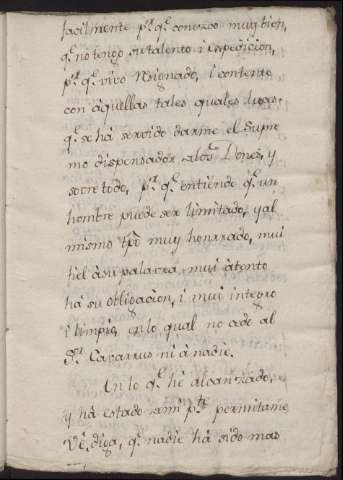 facilmente p.r q.e conozco muy bien,
q.e no tengo su talento i espedicion,
p.r q.e vivo Rsignado, i contento
con aquellas tales quales luses,
q.e se há servido darme el Supre
mo dispensador àlos Dones, y
sovre todo, p.r q.e entiende q.e un
hombre puede ser limitado, y al
mismo tpõ muy honrrado, mui
fiel à su palavra, mui àtento
há su obligacion, i mui integro
i limpio, en lo qual no cede al
S.or Cavarrus ni à nadie.
En lo q.e hè alcanzado,
y há estado à mi p.te permitame
Vê. diga, q.e nadie há sido mas